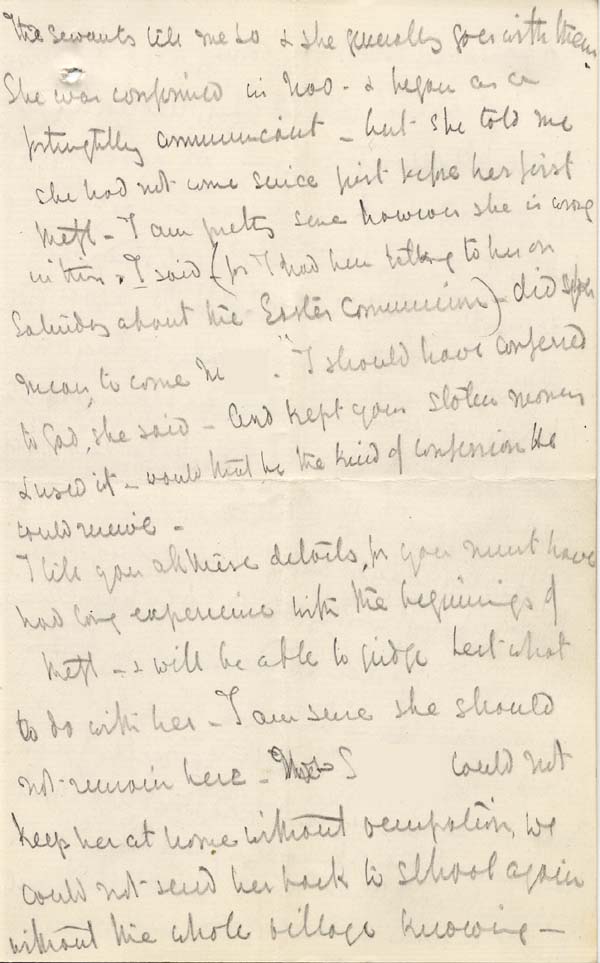 The servants tell me so & she generally goes with them.
She was confirmed in Nov - & began as a
fortnightly communicant - but she told me
she had not come since just before her first
theft - I am pretty sure however she is wrong
in this. I said - (for I had been talking to her on
Saturday about the Easter Communion) - did she
mean to come "I should have confessed
to God," she said - And kept your stolen money
& used it - would that be the kind of confession He
could receive -
I tell you all these details, for you must have
had long experience with the beginnings of
theft - & will be able to judge best what
to do with her - I am sure she should
not remain here - S could not
keep her at home without occupation, we
could not send her back to school again
without the whole village knowing -